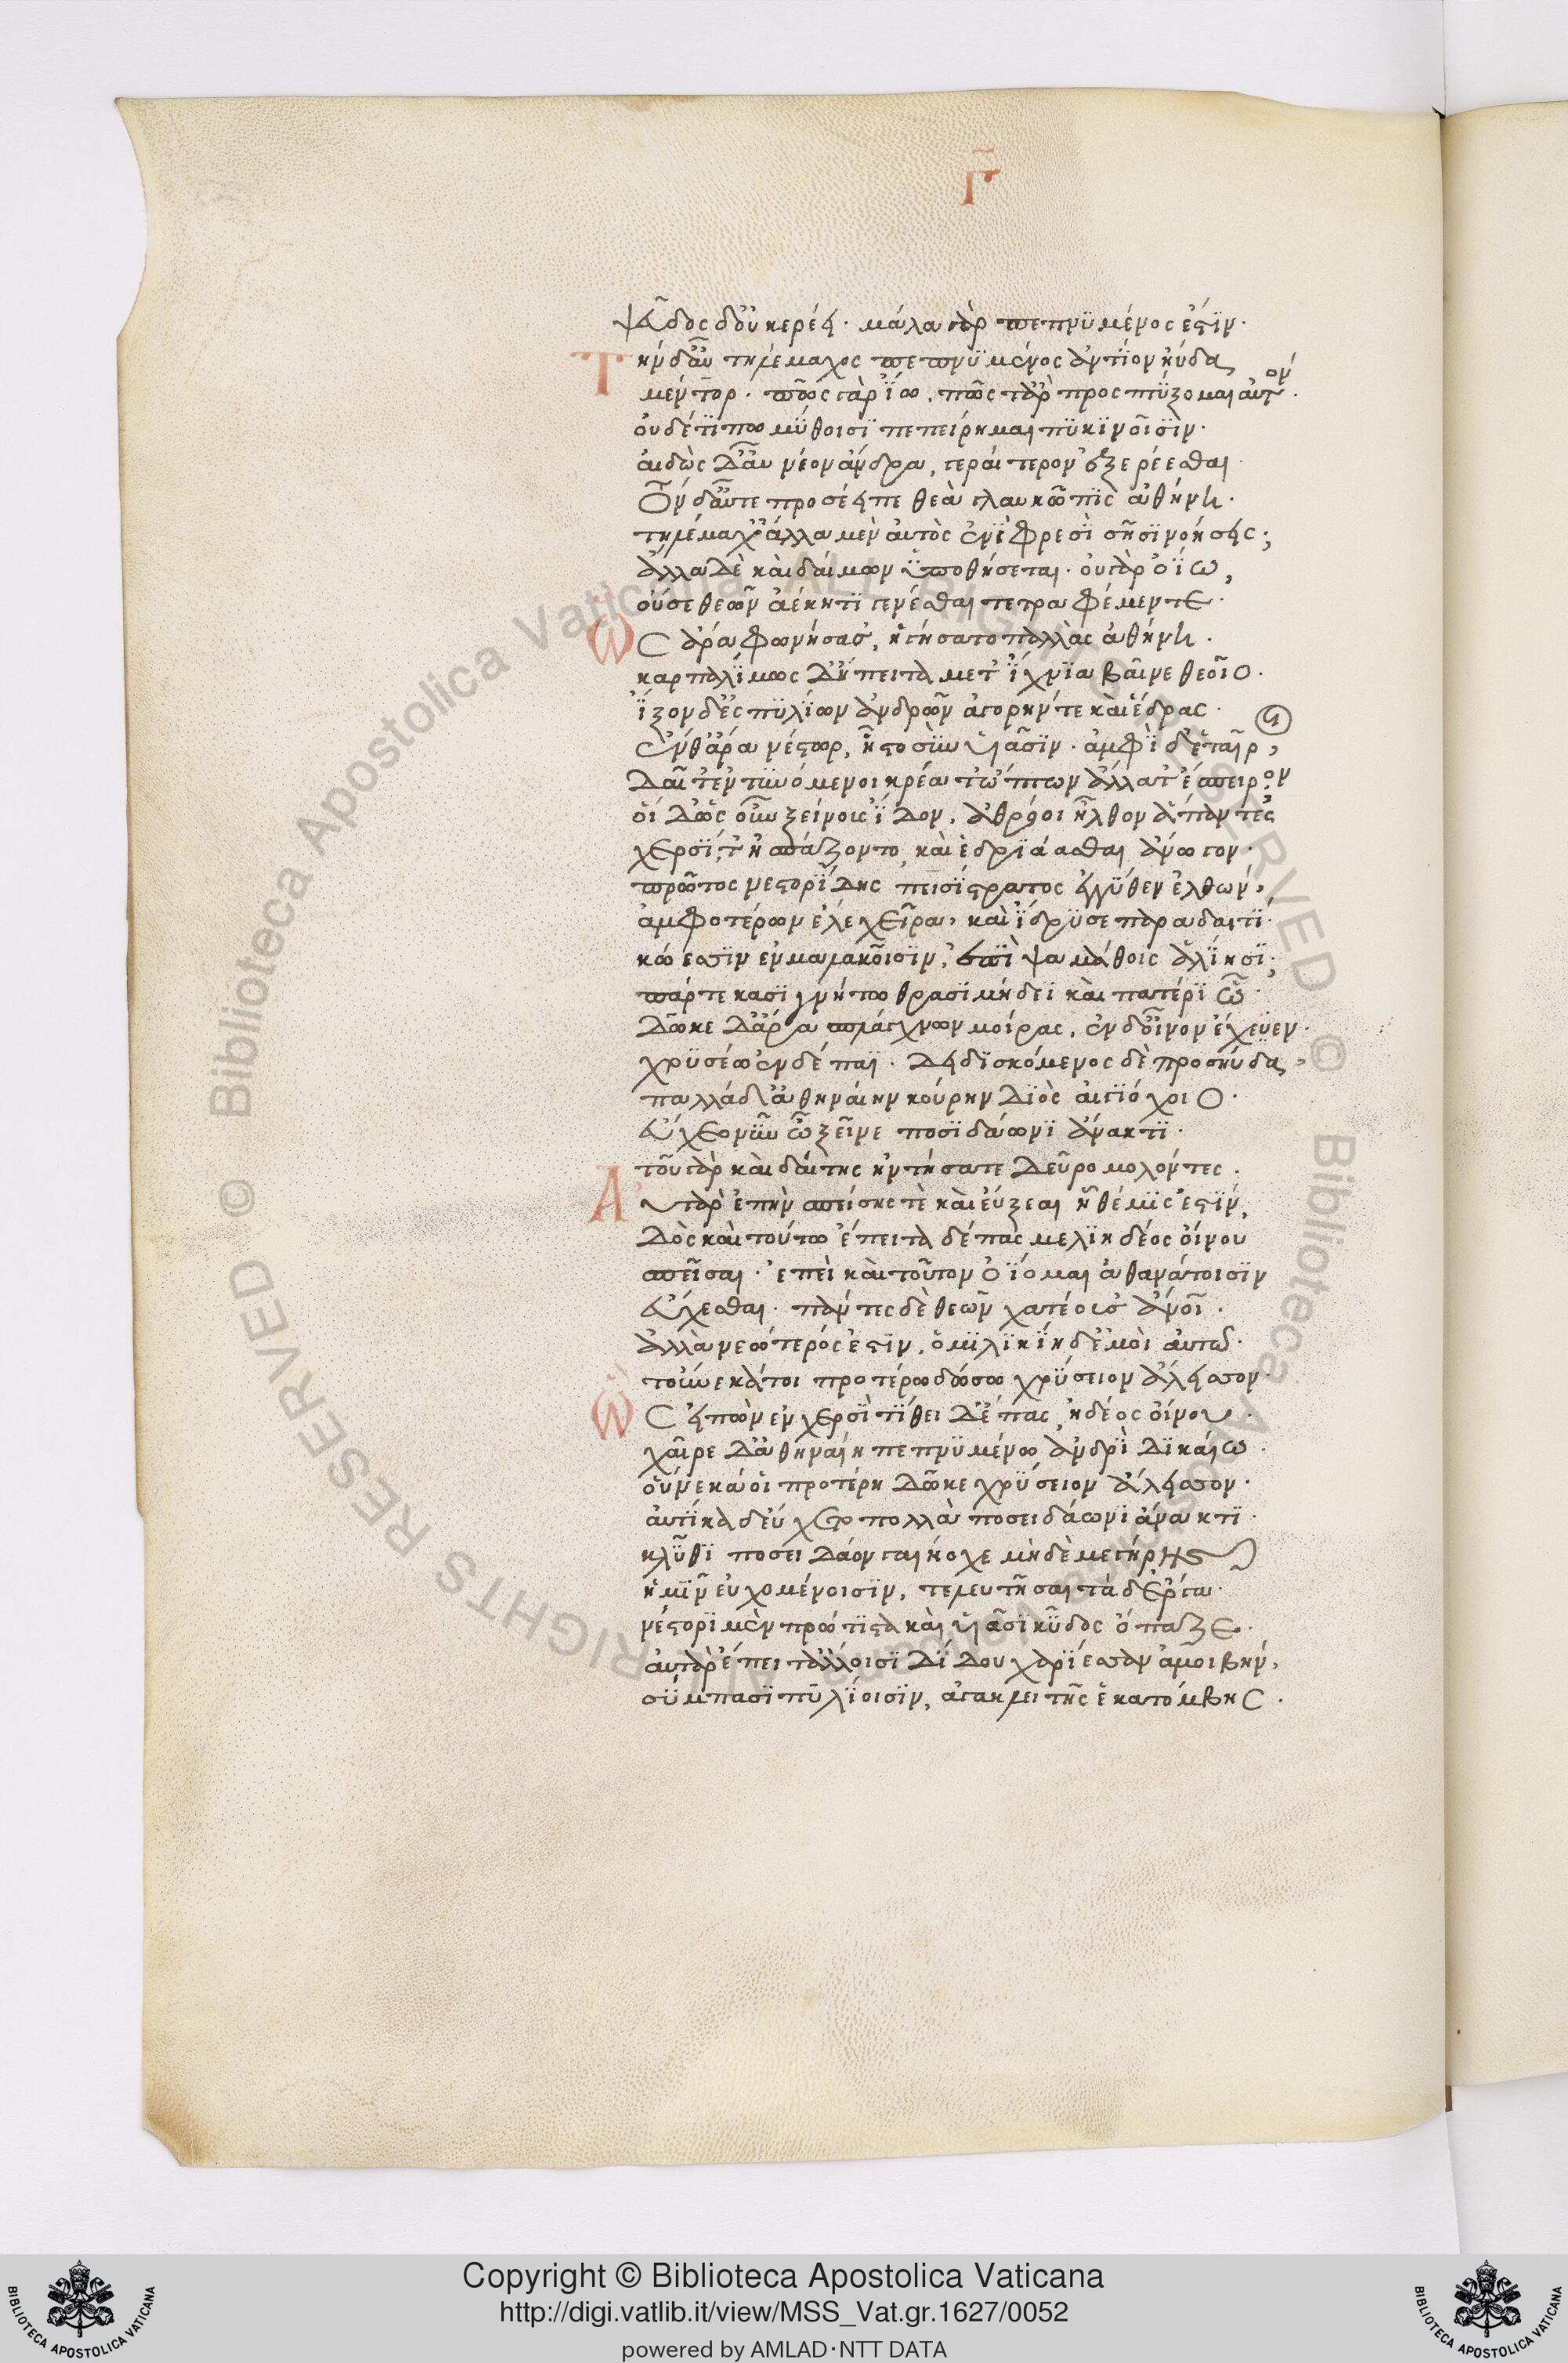 Γ
ψεῦδος δ' οὐκ ἐρέει· μάλα γὰρ πεπνυμένος ἐστίν·
Τὴν δ' αὖ τηλέμαχος πεπνυμένος ἀντίον ηὔδα,
μέντορ· πῶς τὰρ ἴω, πῶς τὰρ προσπτύξομαι αὐτόν·
οὐδέ τί πω μύθοισι πεπείρημαι πυκινοῖσιν·
αἰδὼς δ' αὖ νέον ἄνδρα, γεραίτερον ἐξερέεσθαι
Τὸν δ' αὖτε προσέειπε θεὰ γλαυκῶπις ἀθήνη·
τηλέμαχ' ἄλλα μὲν αὐτὸς ἐνὶ φρεσὶ σῇσι νοήσεις;
ἄλλα δὲ καὶ δαίμων ὑποθήσεται· οὐ γὰρ ὀΐω,
οὔ σε θεῶν ἀέκητι γενέσθαι τε τραφέμεν τε·
Ὣς ἄρα φωνήσασ', ἡγήσατο παλλὰς ἀθήνη·
καρπαλίμως δ' ἤπειτα μετ' ἴχνια βαῖνε θεοῖο·
ἷξον δ' ἐς πυλίων ἀνδρῶν ἀγορήν τε καὶ ἕδρας·
ἔνθ' ἄρα νέστωρ, ἧστο σὺν υἱάσιν· ἀμφὶ δ' ἑταῖρ,
δαῖτ' ἐντυνόμενοι κρέα τ' ὤπτων ἄλλα τ' ἔπειρον
οἱ δ' ὡς οὖν ξείνους ἴδον, ἀθρόοι ἦλθον ἅπαντες
χερσί, τ' ἠσπάζοντο, καὶ ἑδριάασθαι ἄνωγον·
πρῶτος νεστορίδης πεισίστρατος ἐγγύθεν ἐλθών,
ἀμφοτέρων ἕλε χεῖρα, καὶ ἵδρυσε παρὰ δαιτί·
κώεσιν ἐν μαλακοῖσιν, ἐπὶ ψαμάθοις ἁλίῃσι;
πάρ τε κασιγνήτω θρασυμήδει καὶ πατέρι ᾧ·
δῶκε δ' ἄρα σπλάγχνων μοίρας, ἐν δ' οἶνον ἔχευεν·
χρυσέω ἐν δέπαϊ· δειδισκόμενος δὲ προσηύδα,
παλλάδ' ἀθηναίην κούρην διὸς αἰγιόχοιο·
εὔχεο νῦν ὦ ξεῖνε ποσιδάωνι ἄνακτι·
τοῦ γὰρ καὶ δαίτης ἠντήσατε δεῦρο μολόντες·
Αὐτὰρ ἐπὴν σπείσῃς τὲ καὶ εὔξεαι ἣ θέμις ἐστίν,
δὸς καὶ τούτω ἔπειτα δέπας μελιηδέος οἴνου
σπεῖσαι· ἐπεὶ καὶ τοῦτον ὀΐομαι ἀθανάτοισιν
εὔχεσθαι· πάντες δὲ θεῶν χατέουσ' ἄνοι·
ἀλλὰ νεώτερός ἐστιν, ὁμηλικίη δ' ἐμοὶ αὐτῶ·
τοὔνεκά τοι προτέρω δώσω χρύσειον ἄλεισον·
Ὣς εἰπὼν ἐν χερσὶ τίθει δέπας ἡδέος οἴνου·
χαῖρε δ' ἀθηναίη πεπνυμένω ἀνδρὶ δικαίω·
οὕνεκά οἱ προτέρη δῶκε χρύσειον ἄλεισον·
αὐτίκα δ' εὔχετο πολλὰ ποσειδάωνι ἄνακτι·
κλῦθι ποσείδαον γαιήοχε μὴδὲ μεγήρης
ἡμῖν εὐχομένοισιν, τελευτῆσαι τάδε ἔργα·
νέστορι μὲν πρώτιστα καὶ υἱάσι κῦδος ὄπαζε·
αὐτὰρ ἔπειτ' ἄλλοισι δίδου χαρίεσσαν ἀμοιβήν,
σύμπασι πυλίοισιν, ἀγακλειτῆς ἑκατόμβης·